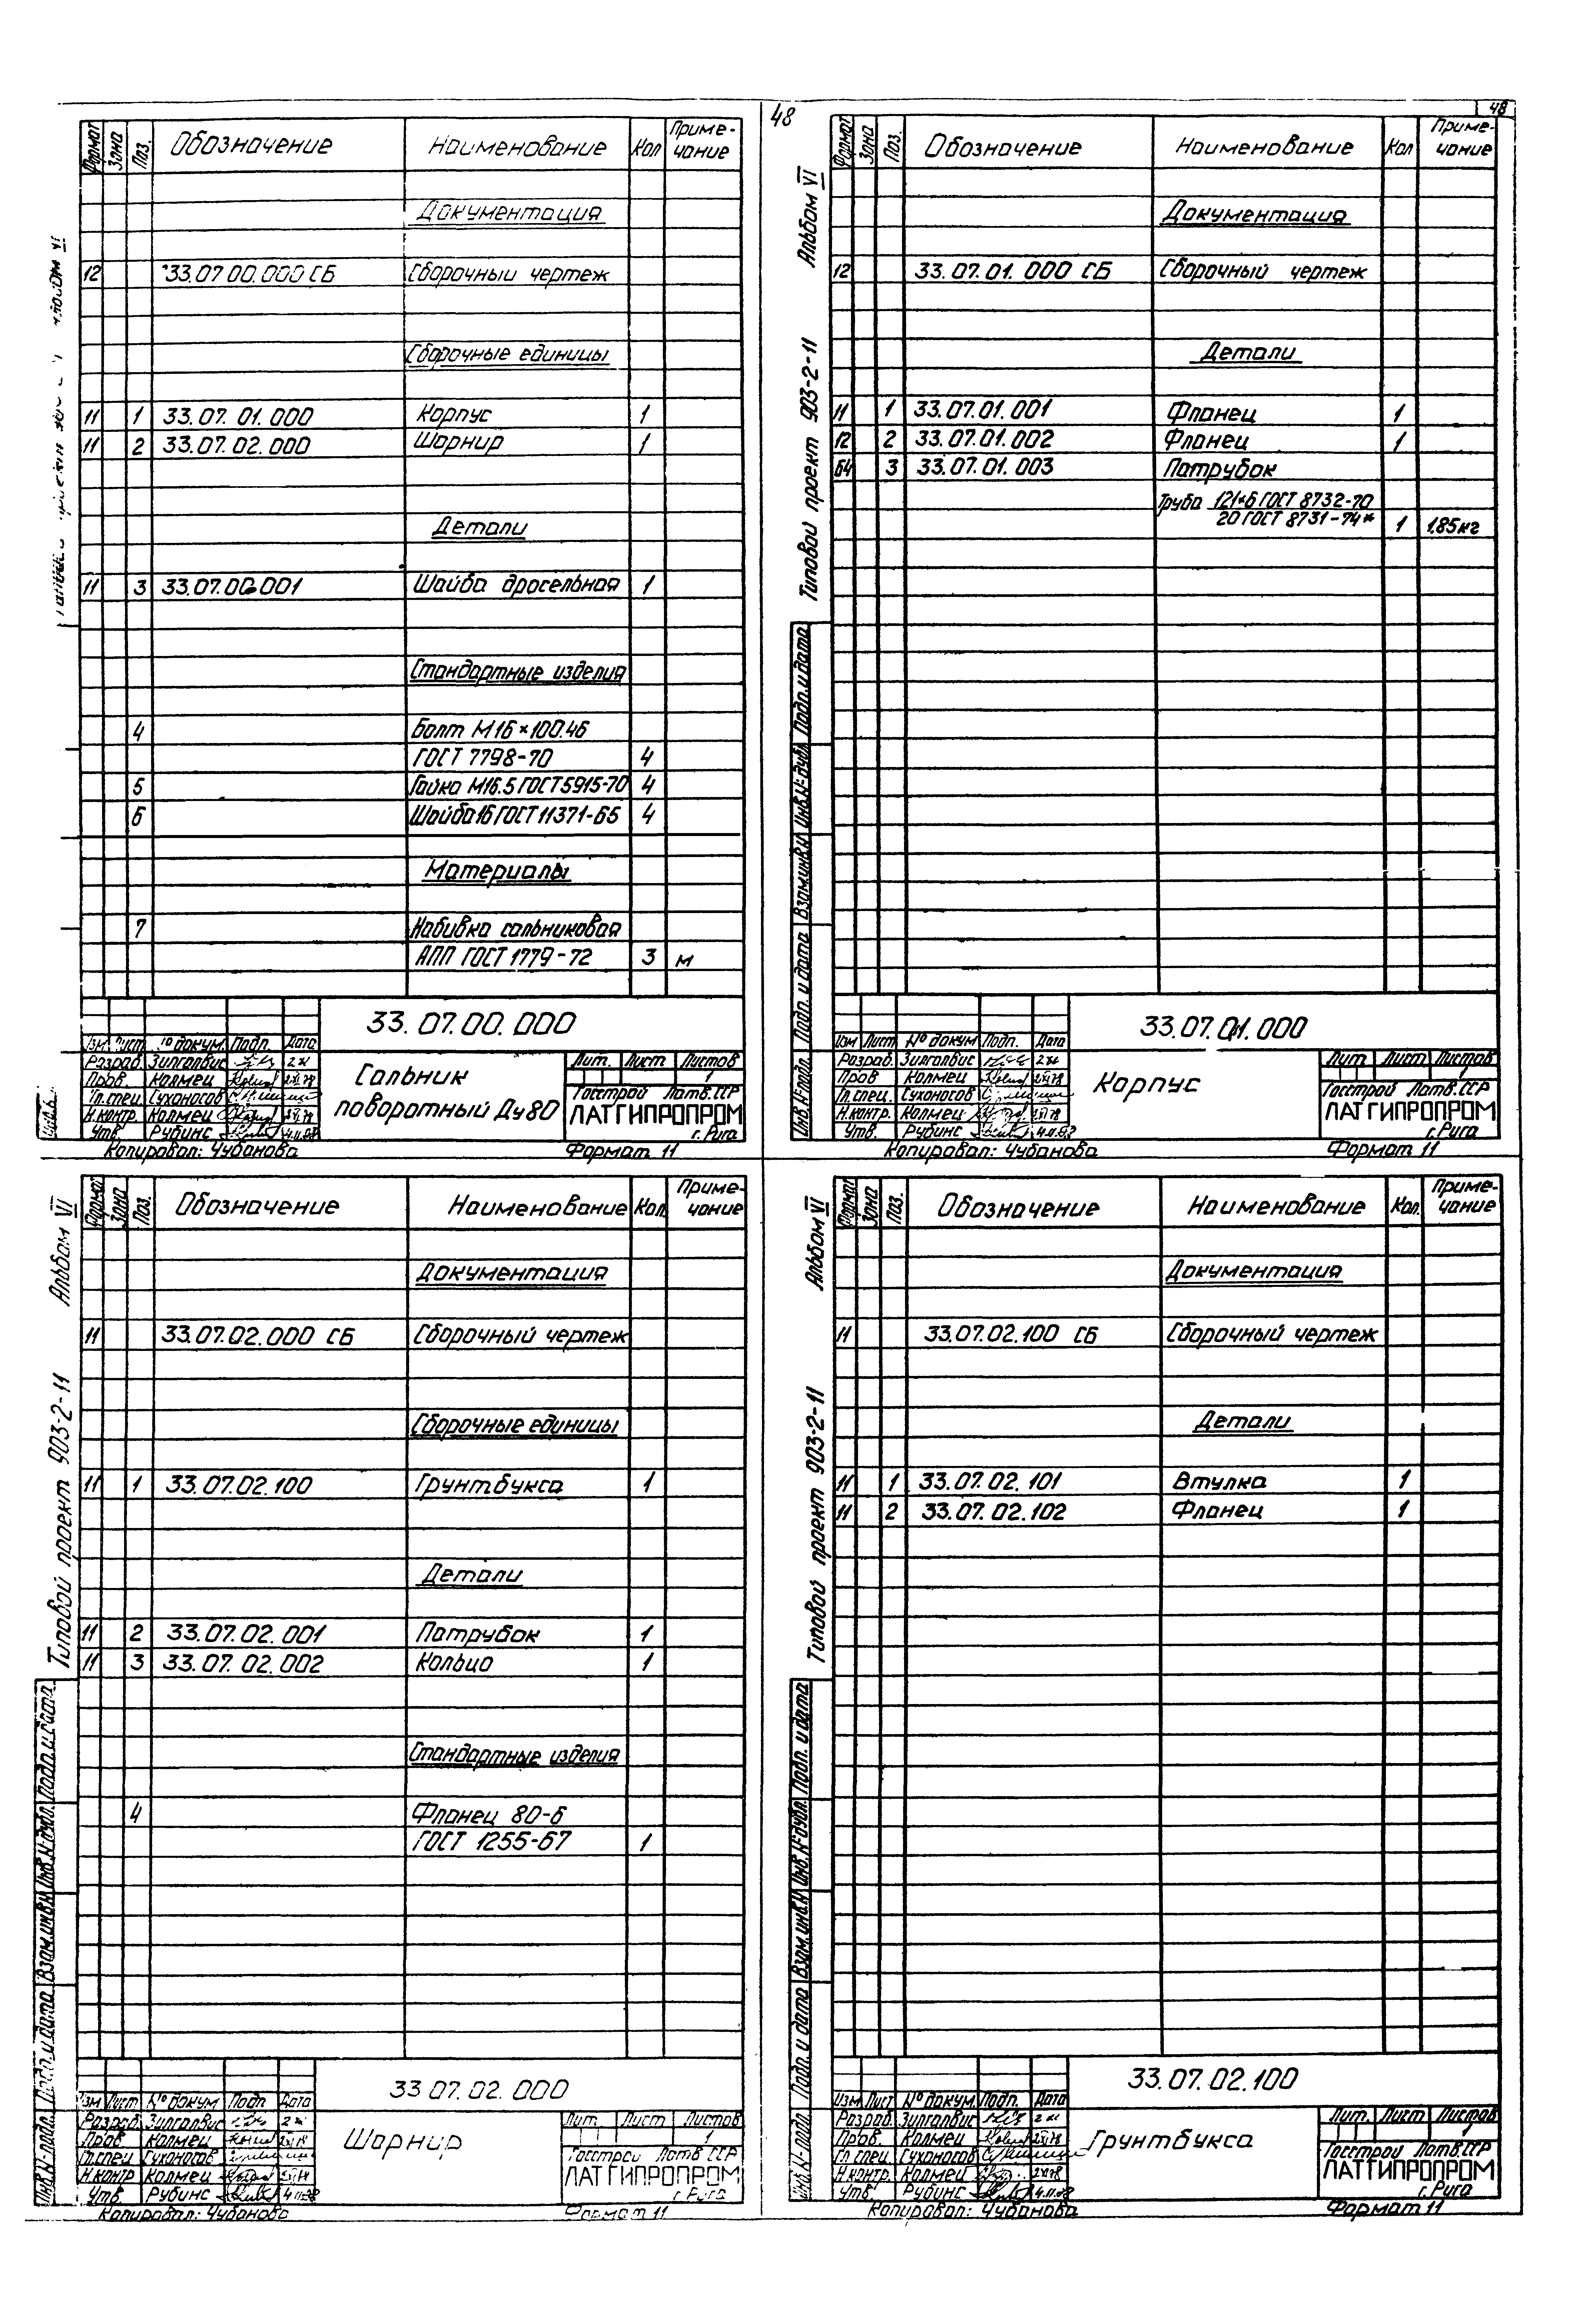 48
48
Формат Зона Поз. Обозначение Наименование Кол Приме-
чание
Документация
12 33.07.00.000 СБ Сборочный чертеж
Сборочные единицы
11 1 33.07.01.000 Корпус 1
11 2 33.07.02.000 Шарнир 1
Детали
11 3 33.07.00.001 Шайба дросельная 1
Стандартные изделия
4 Болт М16×100.46
ГОСТ 7798-70 4
5 Гайка М16.5 ГОСТ 5915-70 4
6 Шайба 16 ГОСТ 11371-65 4
Материалы
7 Набивка сальниковая
АПП ГОСТ 1779-72 3 м
33.07.00.000
Изм Лист № докум. Подп. Дата
Разраб. Зилгалвис
Пров. Калмец
Гл.спец. Сухоносов
Н.контр. Калмец
Утв. Рубинс
Сальник
поворотный Ду80
Лит. Лист Листов
1
Госстрой Латв.ССР
ЛАТГИПРОПРОМ
г. Рига
Копировал: Чубанова Формат 11
Альбом VI
Типовой проект 903-2-11
Формат Зона Поз. Обозначение Наименование Кол Приме-
чание
Документация
12 33.07.01.000 СБ Сборочный чертеж
Детали
11 1 33.07.01.001 Фланец 1
12 2 33.07.01.002 Фланец 1
Б4 3 33.07.01.003 Патрубок
Труба 121×6 ГОСТ 8732-70
20 ГОСТ 8731-74* 1 1.85кг
Инв.№подл. Подп. и дата Взам.инв.№ Инв.№дубл. Подп. и дата
33.07.01.000
Изм Лист № докум Подп. Дата
Разраб. Зилгалвис
Пров Калмец
Гл.спец. Сухоносов
Н.контр. Калмец
Утв. Рубинс
Корпус
Лит. Лист Листов
1
Госстрой Латв.ССР
ЛАТГИПРОПРОМ
г. Рига
Копировал: Чубанова Формат 11
Альбом VI
Типовой проект 903-2-11
Формат Зона Поз. Обозначение Наименование Кол. Приме-
чание
Документация
11 33.07.02.000 СБ Сборочный чертеж
Сборочные единицы
11 1 33.07.02.100 Грунтбукса 1
Детали
11 2 33.07.02.001 Патрубок 1
11 3 33.07.02.002 Кольцо 1
Стандартные изделия
4 Фланец 80-6
ГОСТ 1255-67 1
Инв.№подл. Подп. и дата Взам.инв.№ Инв.№дубл. Подп. и дата
33.07.02.000
Изм Лист № докум Подп Дата
Разраб. Зилгалвис
Пров. Калмец
Гл.спец Сухоносов
Н.контр Калмец
Утв. Рубинс
Шарнир
Лит. Лист Листов
1
Госстрой Латв ССР
ЛАТГИПРОПРОМ
г. Рига
Копировал: Чубанова Формат 11
Альбом VI
Типовой проект 903-2-11
Формат Зона Поз. Обозначение Наименование Кол. Приме-
чание
Документация
11 33.07.02.100 СБ Сборочный чертеж
Детали
11 1 33.07.02.101 Втулка 1
11 2 33.07.02.102 Фланец 1
Инв.№подл. Подп. и дата Взам.инв.№ Инв.№дубл. Подп. и дата
33.07.02.100
Изм Лист № докум. Подп. Дата
Разраб. Зилгалвис
Пров. Калмец
Гл.спец. Сухоносов
Н.контр. Калмец
Утв. Рубинс
Грунтбукса
Лит. Лист Листов
1
Госстрой Латв ССР
ЛАТГИПРОПРОМ
г. Рига
Копировал: Чубанова Формат 11